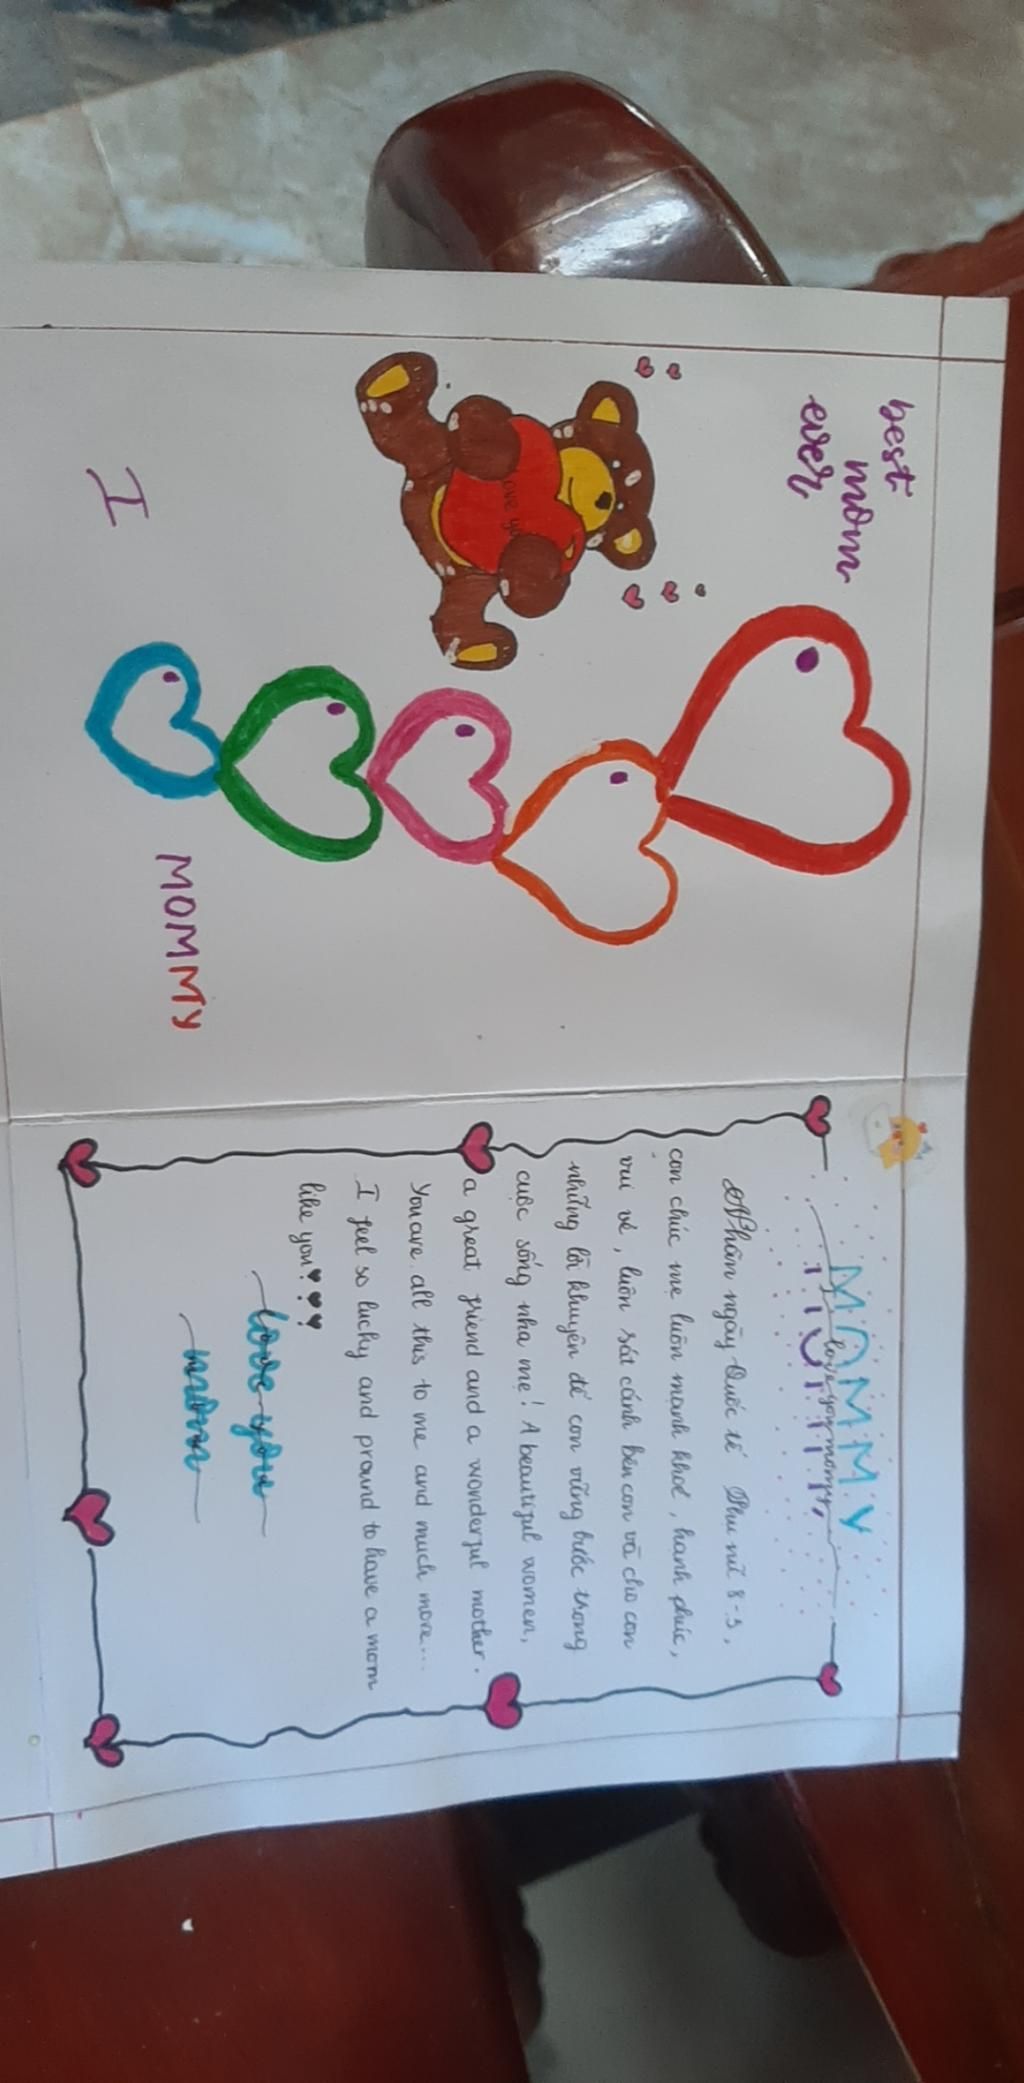 best
mom
ever
love you
I
MOMMY
MOMMY
love you mommy
Nhân ngày Quốc tế Phụ nữ 8-3,
con chúc mẹ luôn mạnh khoẻ, hạnh phúc,
vui vẻ, luôn sát cánh bên con và cho con
những lời khuyên để con vững bước trong
cuộc sống nha mẹ! A beautiful women,
a great friend and a wonderful mother.
You are all this to me and much more...
I feel so lucky and pround to have a mom
like you♥♥♥
love you
mom